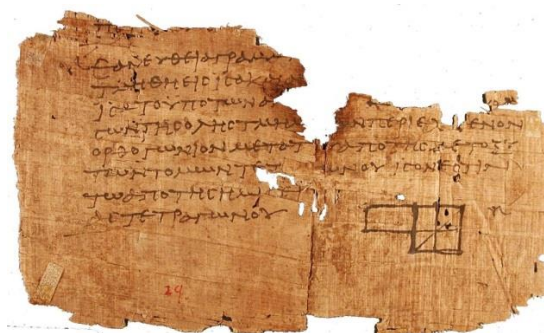 ΕΑΝ ΕΥΘΕΙΑ ΓΡΑΜ
ΤΜΗΘΗ ΕΙϹ ΙϹΑ ΚΑΙ
ΙϹΑ ΤΟ ΥΠΟ ΤΩΝ Α
ϹΩΝ ΤΗϹ ΟΛΗϹ ΤΜΗ ΩΝ ΠΕΡΙΕΧ ΜΕΝΟΝ
ΟΡΘΟΓΩΝΙΟΝ ΜΕΤΑ ΤΟΥ ΑΠΟ ΤΗϹ ΜΕΤΟΞΥ
ΤΩΝ ΤΟΜΩΝ ΤΕΤ ΩΝΟΥ ΙϹΟΝ ΕϹΤΙΝ
ΤΩ ΑΠΟ ΤΗϹ ΗΜΙ
ΑϹ ΤΕΤΡΑΓΩΝΟΥ
29